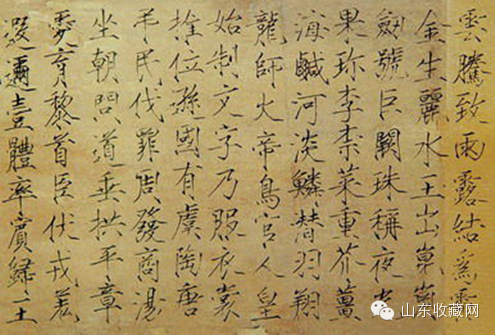 雲騰致雨露結為霜
金生麗水玉出崑崗
劒號巨闕珠稱夜光
果珍李柰菜重芥薑
海鹹河淡鱗潛羽翔
龍師火帝鳥官人皇
始制文字乃服衣裳
推位遜國有虞陶唐
弔民伐罪周發商湯
坐朝問道垂拱平章
愛育黎首臣伏戎羌
遐邇壹體率賓歸王
山东收藏网